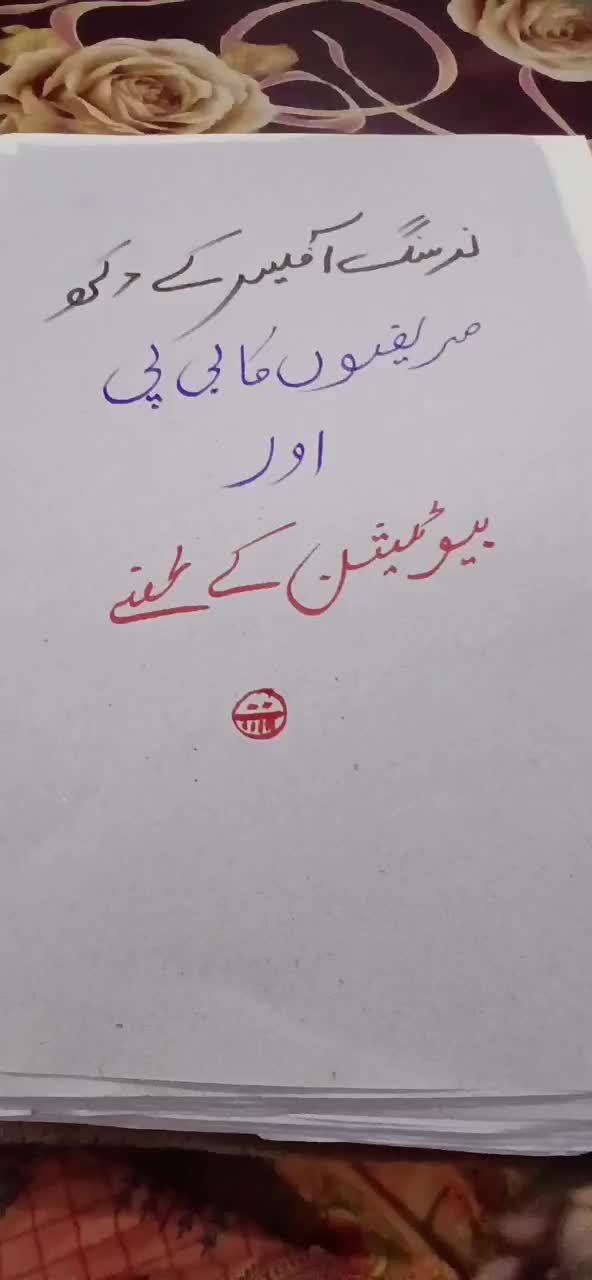 نرسنگ آفیسر کے دکھ
مریضوں کا بی پی
اور
بیوٹیشن کے طعنے